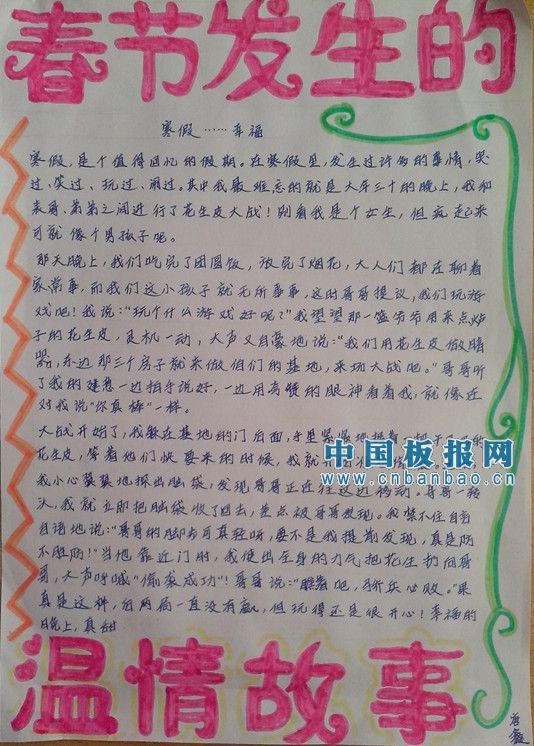 春节发生的
寒假……幸福
寒假，是个值得回忆的假期。在寒假里，发生过许多的事情，哭
过、笑过、玩过、闹过。其中我最难忘的就是大年三十的晚上，我和
表哥、弟弟之间进行了花生皮大战！别看我是个女生，但疯起来
可就像个男孩子呢。
那天晚上，我们吃完了团圆饭，放完了烟花，大人们都在聊着
家常事，而我们这小孩子就无所事事，这时哥哥提议，我们玩游
戏吧！我说：“玩个什么游戏好呢？”我望望那一篮爷爷用来点炉
子的花生皮，灵机一动，大声又自豪地说：“我们用花生皮做
器，东边那三个房子就来做咱们的基地，来场大战吧。”哥哥听
了我的建意一边拍手说好，一边用高赞的眼神看着我，就像在
对我说“你真棒”一样。
大战开始了，我躲在基地的门后面，手里紧紧地
花生皮，等着他们快要来的时候，我就
我小心翼翼地探出脑袋，发现哥哥正在往这边移动。哥哥一转
头，我就立即把脑袋收了回去，差点被哥哥发现。我禁不住自言
自语地说：“哥哥的脚步可真轻呀，要不是我提前发现，真是防
不胜防！”当他靠近门时，我使出全身的力气把花生扔向哥
哥，大声呼喊“偷袭成功”！哥哥说：“瞧着吧，骄兵必败。”果
真是这样，后两局一直没有赢，但玩得还是很开心！幸福的
晚上，真甜
中国板报网
www.cnbanbao.cn
温情故事